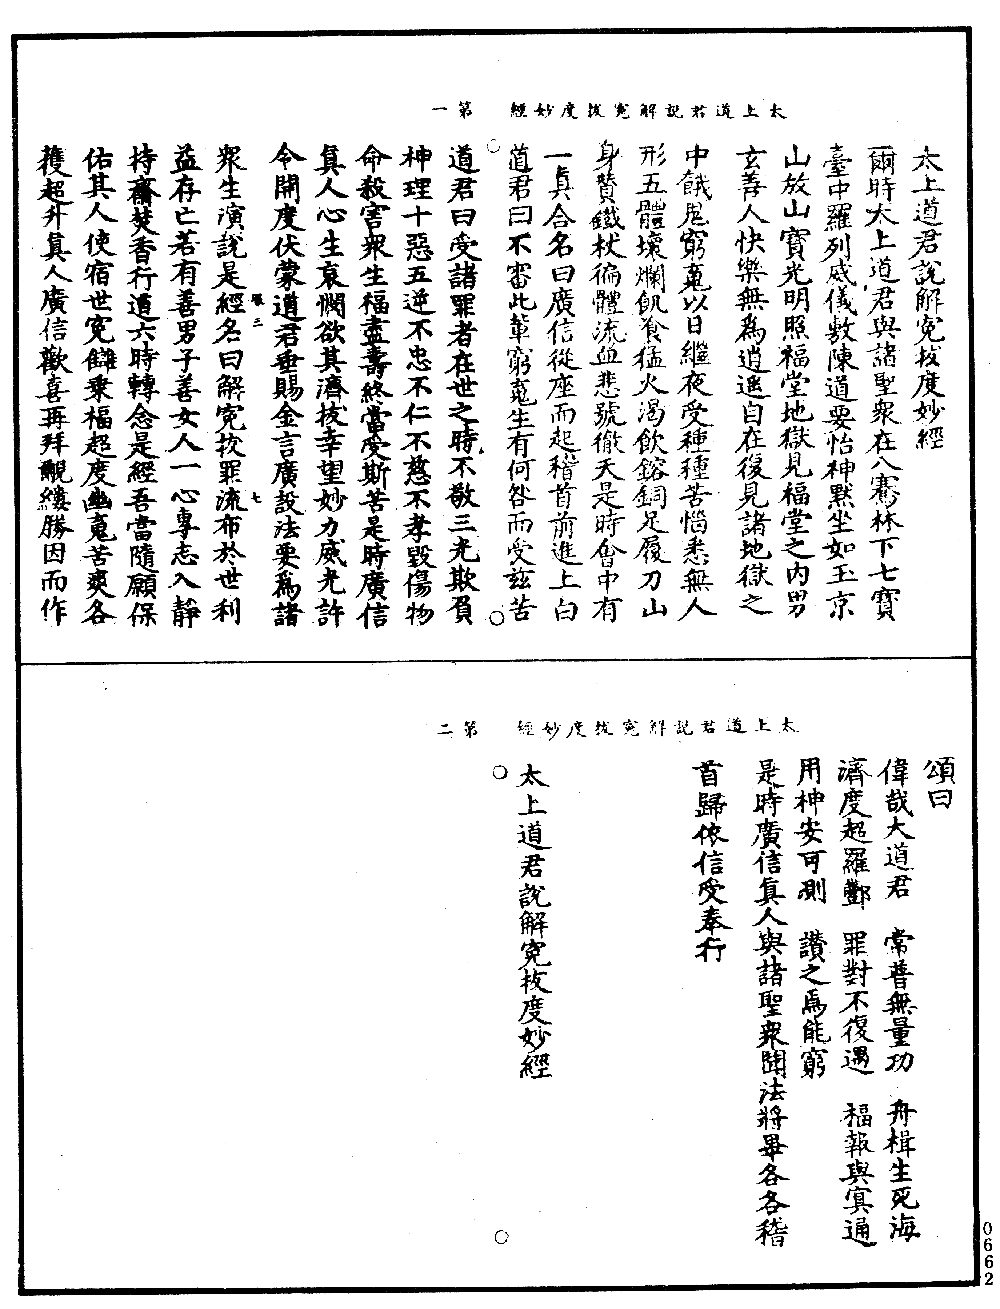 太上道君說解寃拔度妙經　第一
太上道君說解寃拔度妙經
爾時太上道君與諸聖衆在八騫林下七寶
臺中羅列威儀敷陳道要怡神默坐如玉京
山放山寶光明照福堂地獄見福堂之内男
玄善人快樂無爲逍遥自在復見諸地獄之
中餓鬼窮䰟以日繼夜受種種苦惱悉無人
形五體壞爛飢飡猛火渴飲鎔銅足履刀山
身贊鐵杖徧體流血悲號徹天是時會中有
一眞合名曰廣信從座而起稽首前進上白
道君曰不審此輩窮䰟生有何咎而受兹苦
道君曰受諸罪者在世之時不敬三光欺負
神理十惡五逆不忠不仁不慈不孝毀傷物
命殺害衆生福盡壽終當受斯苦是時廣信
眞人心生哀憫欲其濟拔幸望妙力威光許
令開度伏蒙道君垂賜金言廣設法要爲諸
服三　七
衆生演說是經名曰解寃拔罪流布於世利
益存亡若有善男子善女人一心專志入靜
持齋焚香行道六時轉念是經吾當隨願保
佑其人使宿世寃讎乘福超度幽䰟苦爽各
獲超升眞人廣信歡喜再拜覼縷勝因而作
太上道君說解寃拔度妙經　第二
頌曰
偉哉大道君　常普無量功　舟楫生死海
濟度超羅酆　罪對不復遇　福報與冥通
用神安可測　讚之焉能窮
是時廣信眞人與諸聖衆聞法將畢各各稽
首歸依信受奉行
太上道君說解寃拔度妙經
0662